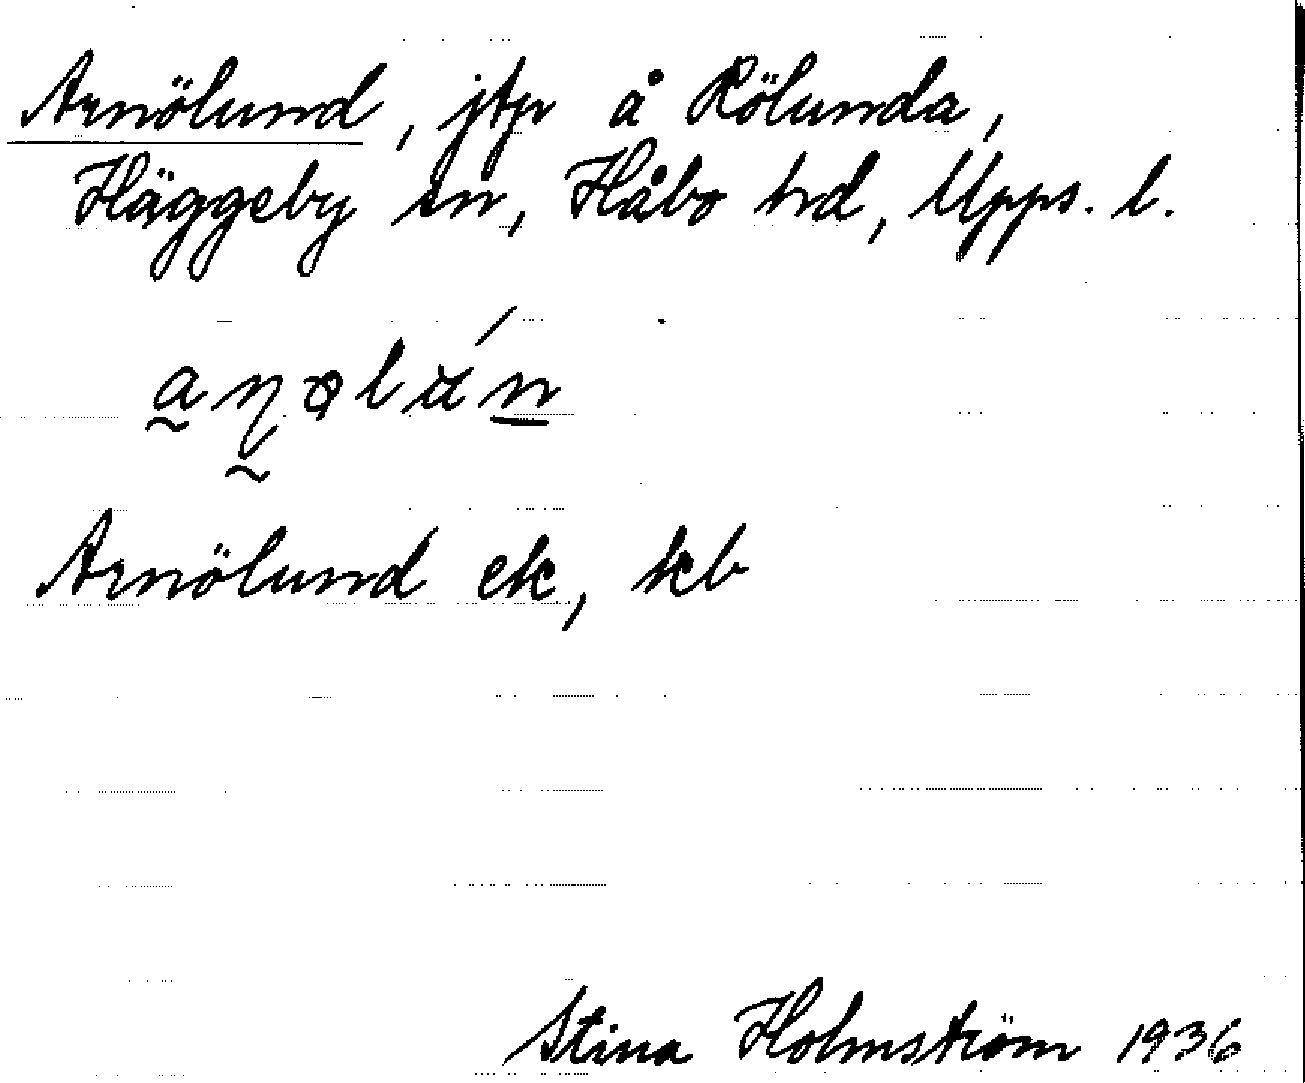 Arnölund, jtp å Rölunda,
Häggeby sn, Håbo hd, Upps. l.
Arnölund ek, kb
Stina Holmström 1936